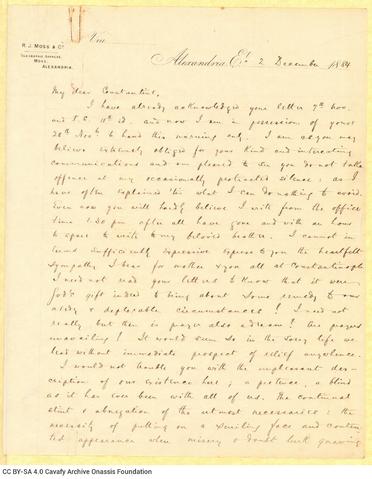 R. J. MOSS & Co.
TELEGRAPHIC ADDRESS,
MOSS.
ALEXANDRIA.
Via
Alexandria, Et. 2 December 1884
My dear Constantine,
I have already acknowledged your letter 7th Nov.
and P.C. 11th id. and now I am in possession of yours
28th Novbr to hand this morning only. I am as you may
believe extremely obliged for your kind and interesting
communications and am pleased to see you do not take
offence at my occasionally protracted silence: as I
have often explained 'tis what I can do nothing to avoid.
Even now you will hardly believe I write from the office
time 1.30 pm after all have gone and with an hour
to spare to write to my beloved brother. I cannot in
terms sufficiently expressive expose to you the heartfelt
sympathy I bear for mother & you all at Constantinople
I need not read your letters to know that it were
God's gift indeed to bring about some remedy to our
& deplorable circumstances! I need not
really but then is prayer also a dream? Are prayers
unavailing? It would seem so in the sorry life we
lead without immediate prospect of relief anywhere.
I would not trouble you with the unpleasant des-
cription of our existence here; a pretence, a blind
as it has ever been with all of us. The continual
stint & abnegation of the utmost necessaries: the
necessity of putting on a smiling face and conten-
ted appearance when misery & doubt lurk gnawing
CC BY-SA 4.0 Cavafy Archive Onassis Foundation